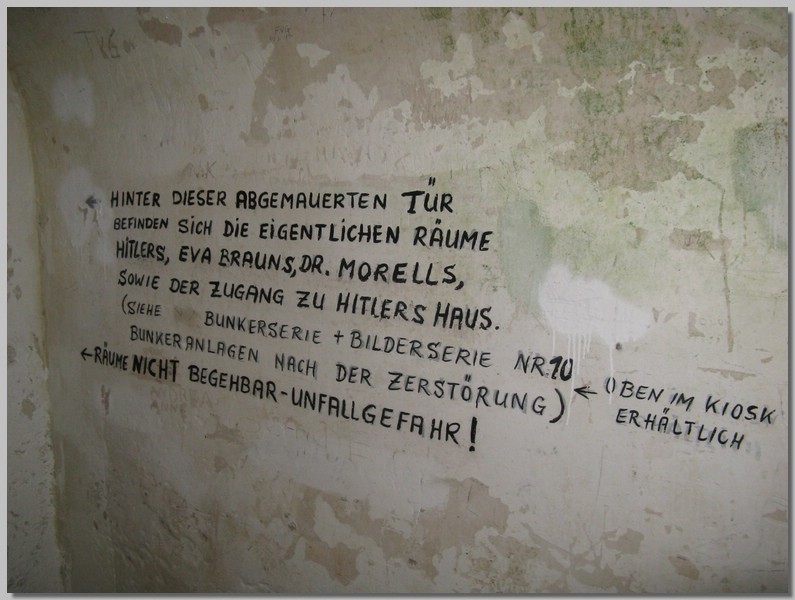 ← HINTER DIESER ABGEMAUERTEN TÜR
BEFINDEN SICH DIE EIGENTLICHEN RÄUME
HITLERS, EVA BRAUNS, DR. MORELLS,
SOWIE DER ZUGANG ZU HITLERS HAUS.
(SIEHE BUNKERSERIE + BILDERSERIE NR. 10
BUNKERANLAGEN NACH DER ZERSTÖRUNG) ← OBEN IM KIOSK
ERHÄLTLICH
← RÄUME NICHT BEGEHBAR - UNFALLGEFAHR!